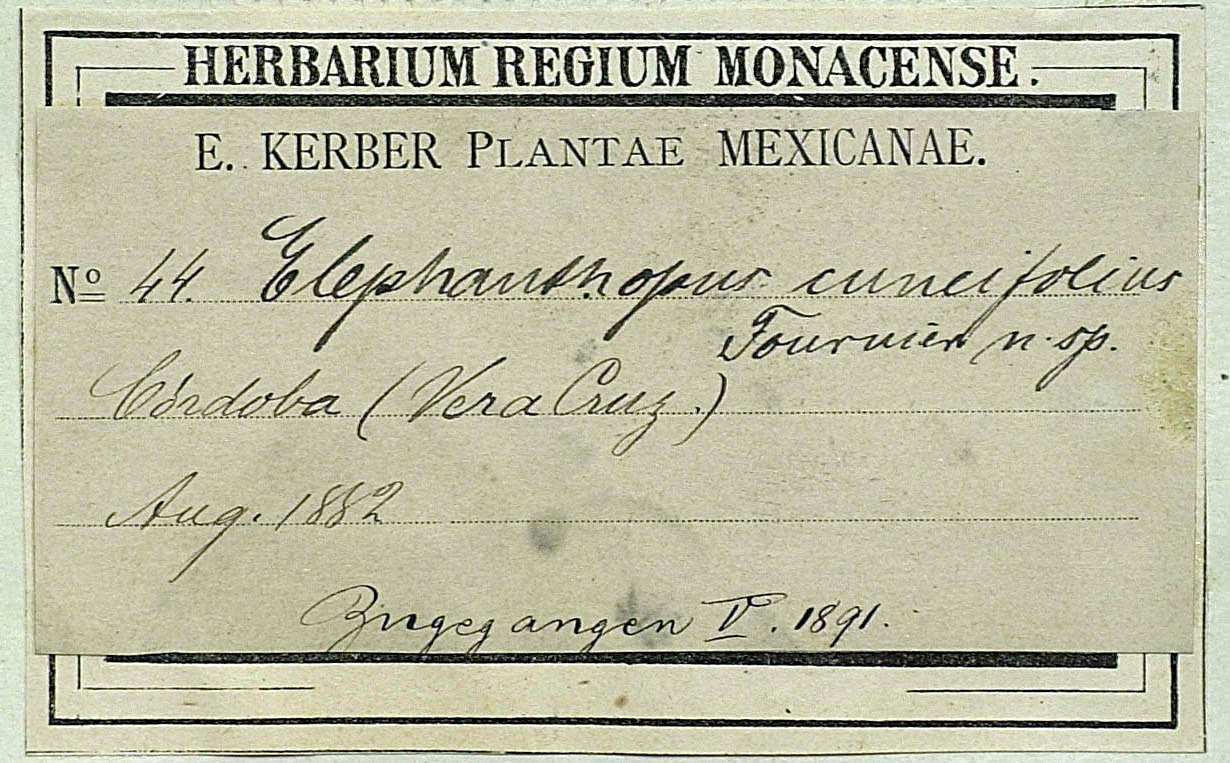 HERBARIUM REGIUM MONACENSE.
E. KERBER PLANTAE MEXICANAE.
Nº 44. Elephanthopus cuneifolius
Fournier n. sp.
Córdoba (Vera Cruz.)
Aug. 1882
Zugegangen V. 1891.